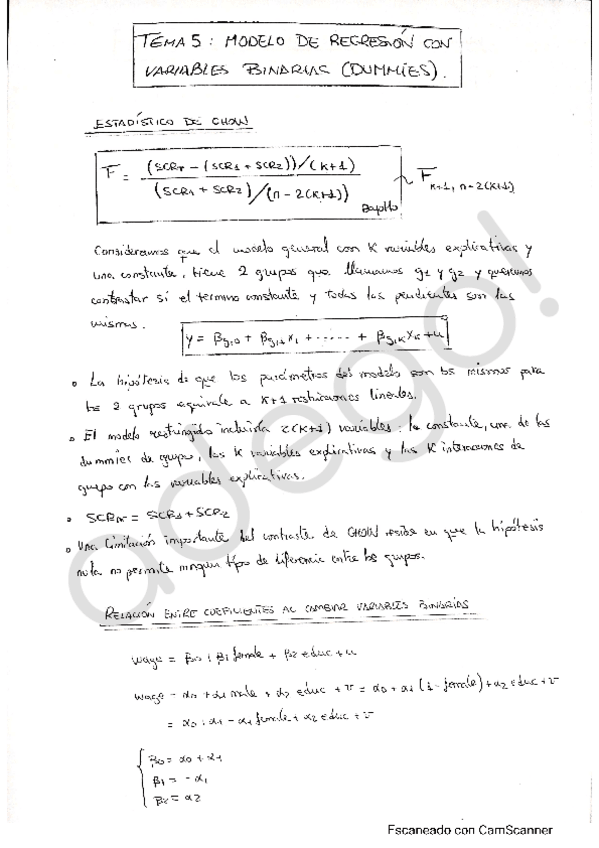 TEMA 5: MODELO DE REGRESIÓN CON
VARIABLES BINARIAS (DUMMIES).
ESTADÍSTICO DE CHOW
F = (SCRr - (SCR1 + SCR2))/(K+1) / (SCR1 + SCR2)/(n-2(K+1)) ~ F K+1, n-2(K+1)
Consideramos que el modelo general con K variables explicativas y
una constante, tiene 2 grupos que llamamos g1 y g2 y queremos
contrastar si el termino constante y todas las pendientes son las
mismas.
y = βg,0 + βg,1 x1 + ...... + βg,K xK + u
• La hipótesis de que los parámetros del modelo son los mismos para
los 2 grupos equivale a K+1 restricciones lineales.
• El modelo restringido incluiría 2(K+1) variables: la constante, una de las
dummies de grupo, las K variables explicativas y las K interacciones de
grupo con las variables explicativas.
• SCRnr = SCR1 + SCR2
• Una limitación importante del contraste de CHOW reside en que la hipótesis
nula no permite ningún tipo de diferencia entre los grupos.
RELACIÓN ENTRE COEFICIENTES AL CAMBIAR VARIABLES BINARIAS
wage = β0 + β1 female + β2 educ + u
wage = α0 + α1 male + α2 educ + v = α0 + α1 (1 - female) + α2 educ + v
= α0 + α1 - α1 female + α2 educ + v
β0 = α0 + α1
β1 = - α1
β2 = α2
adego!
Escaneado con CamScanner